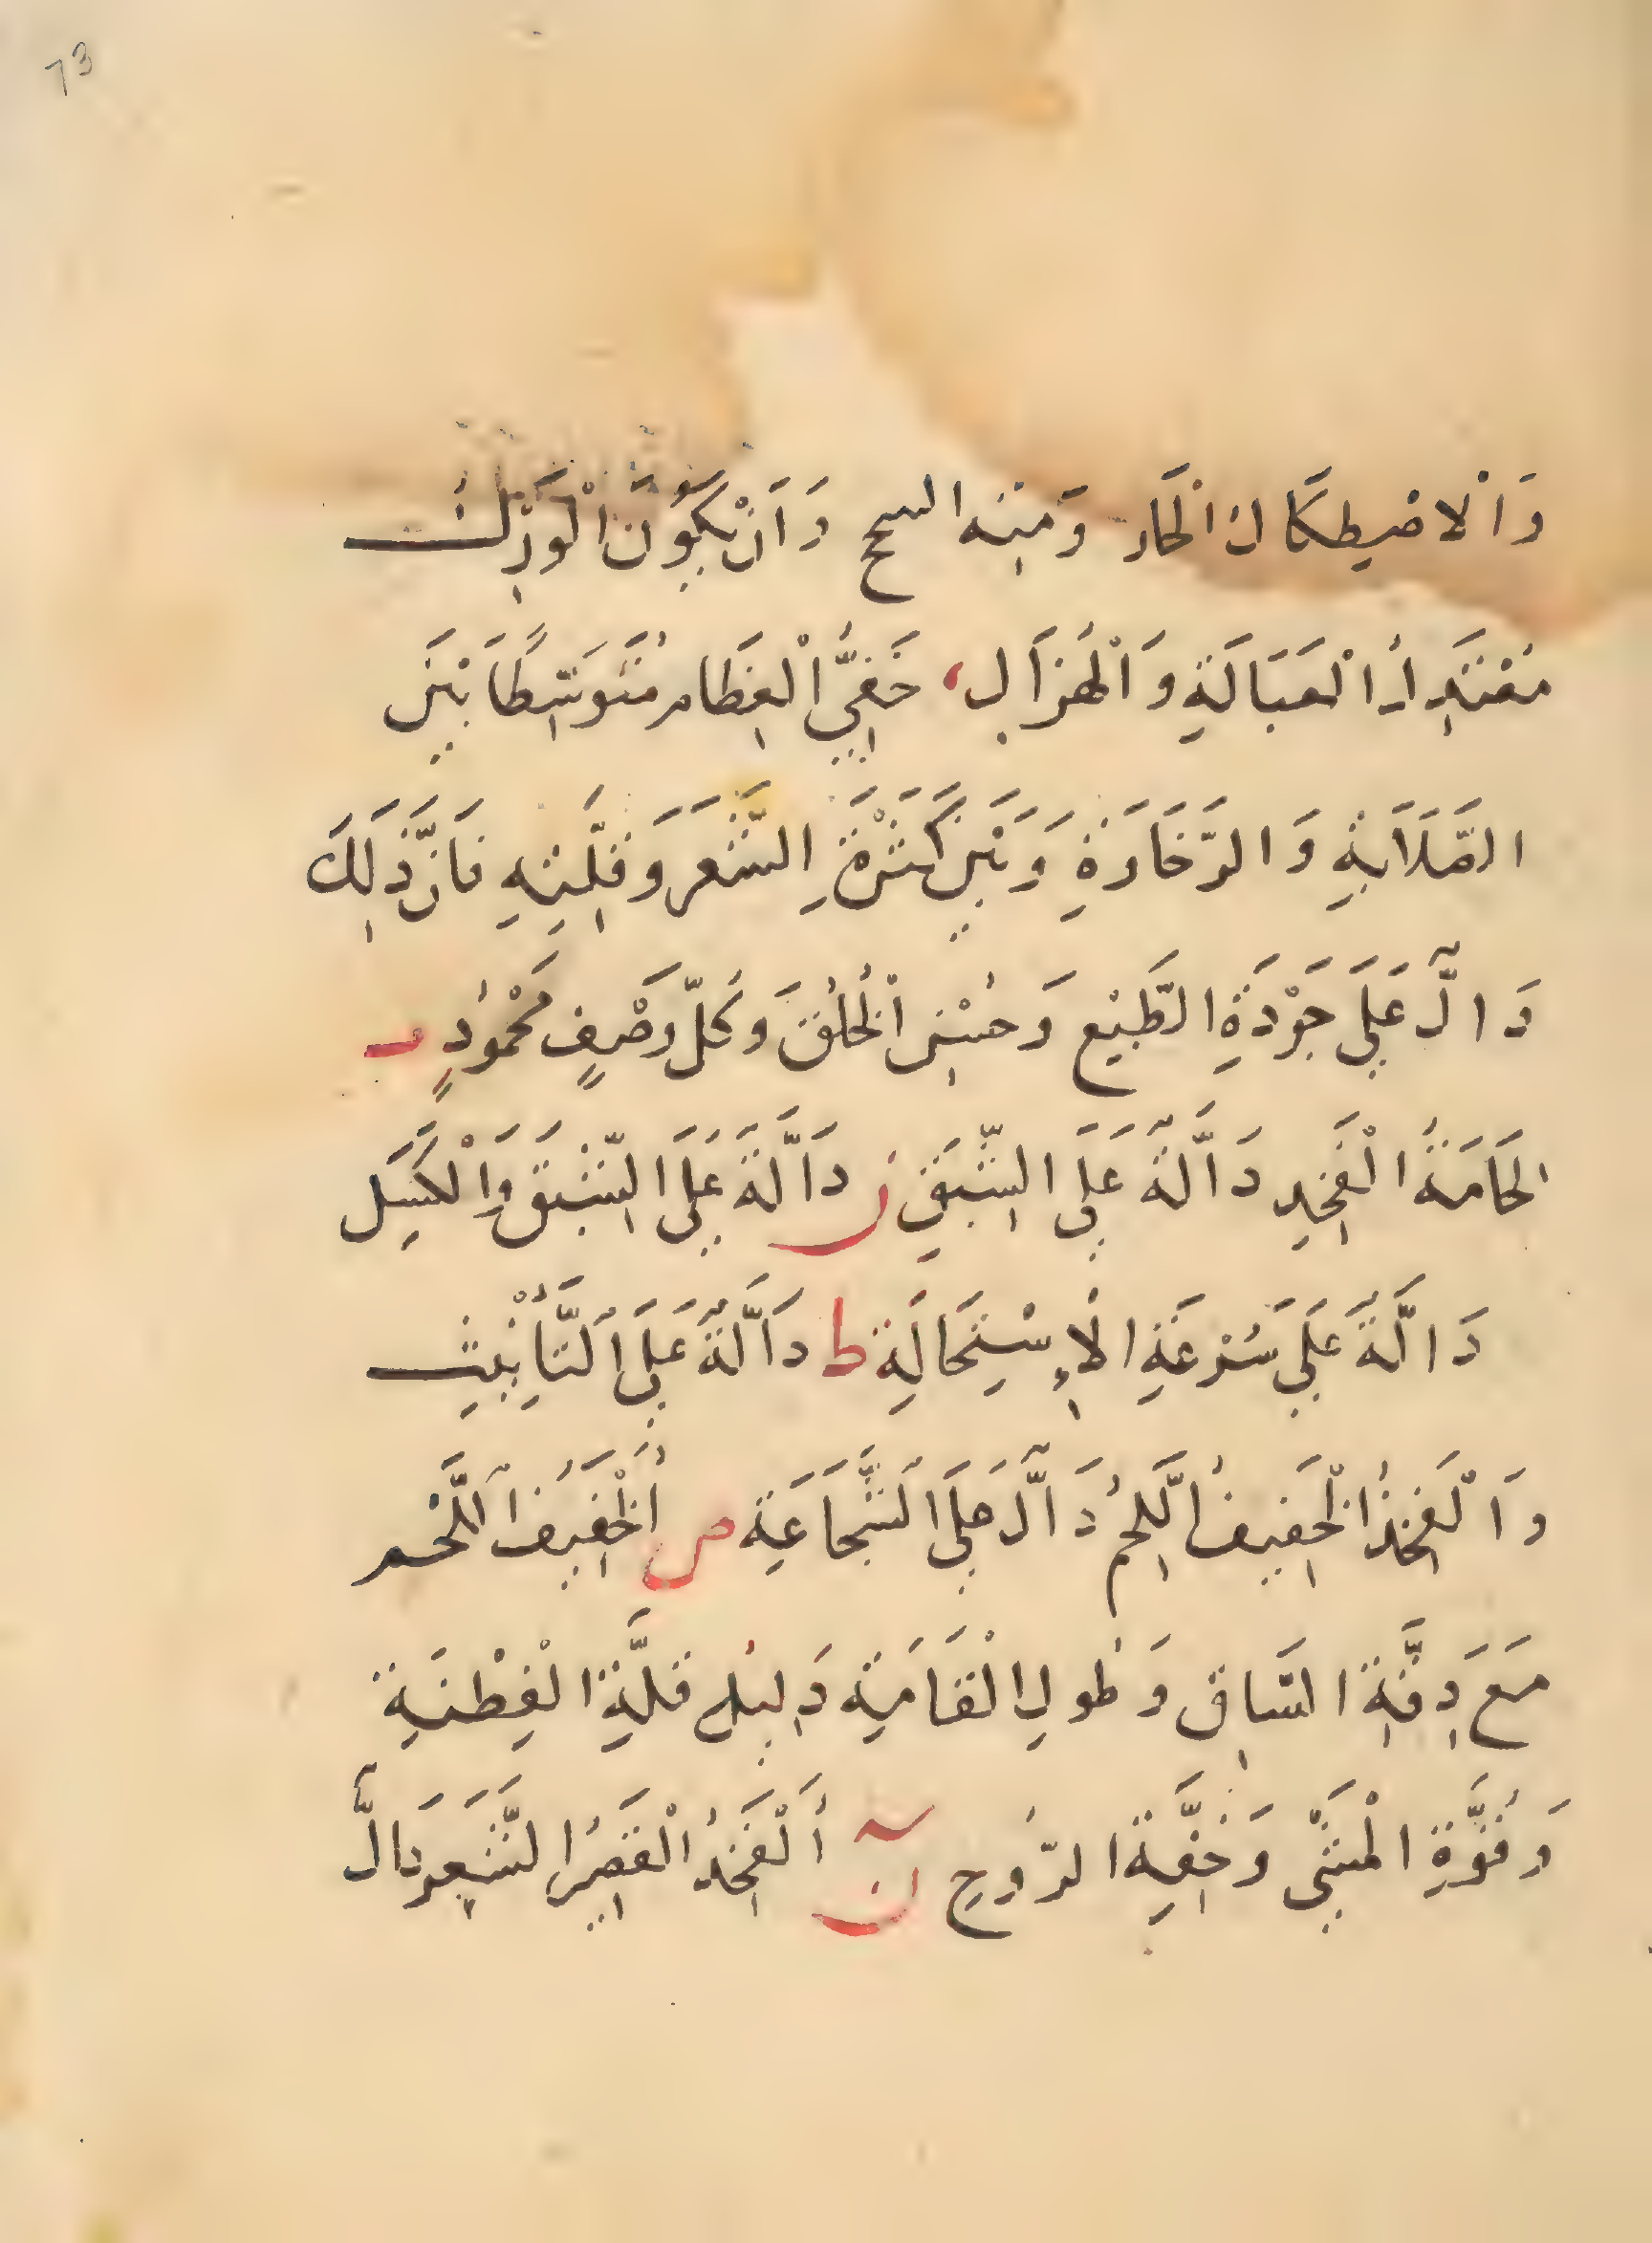 73
وَالْاصْطِكَاكُ الْحَاد وَمِنْه السحج وَاَنْ يَكُوْنَ الْوَرِكُ
مُعْتَدِلُ الْعَبَالَةِ وَالْهُزَالِ، خَفِيُّ الْعِظَامِ مُتَوَسِّطًا بَيْنَ
الصَّلَابَةِ وَالرَّخَاوَةِ وَبَيْنَ كَثْرَةِ الشَّعَرِ وَقِلَّتِهِ فَاِنَّ ذَلِكَ
دَالٌّ عَلَى جَوْدَةِ الطَّبْعِ وَحُسْنِ الْخُلُقِ وَكُلِّ وَصْفٍ مَحْمُوْدٍ
الْحَامَةُ الْفَخِذِ دَالَّةٌ عَلَى الشَّبَقِ ن دَالَّةٌ عَلَى الشَّبَقِ وَالْكَسَلِ
دَالَّةٌ عَلَى سُرْعَةِ الْاِسْتِحَالَةِ ط دَالَّةٌ عَلَى التَّأْنِيْثِ
وَالْفَخِذُ الْخَفِيْفُ اللَّحْمِ دَالٌّ عَلَى الشَّجَاعَةِ ص اَلْخَفِيْفُ اللَّحْمِ
مَعَ دِقَّةِ السَّاقِ وَطُولِ الْقَامَةِ دَلِيْلُ قِلَّةِ الْفِطْنَةِ
وَقُوَّةِ الْمَشْيِ وَخِفَّةِ الرُّوحِ ن اَلْفَخِذُ الْقَصِيْرُ الشَّعَرِ دَالٌّ